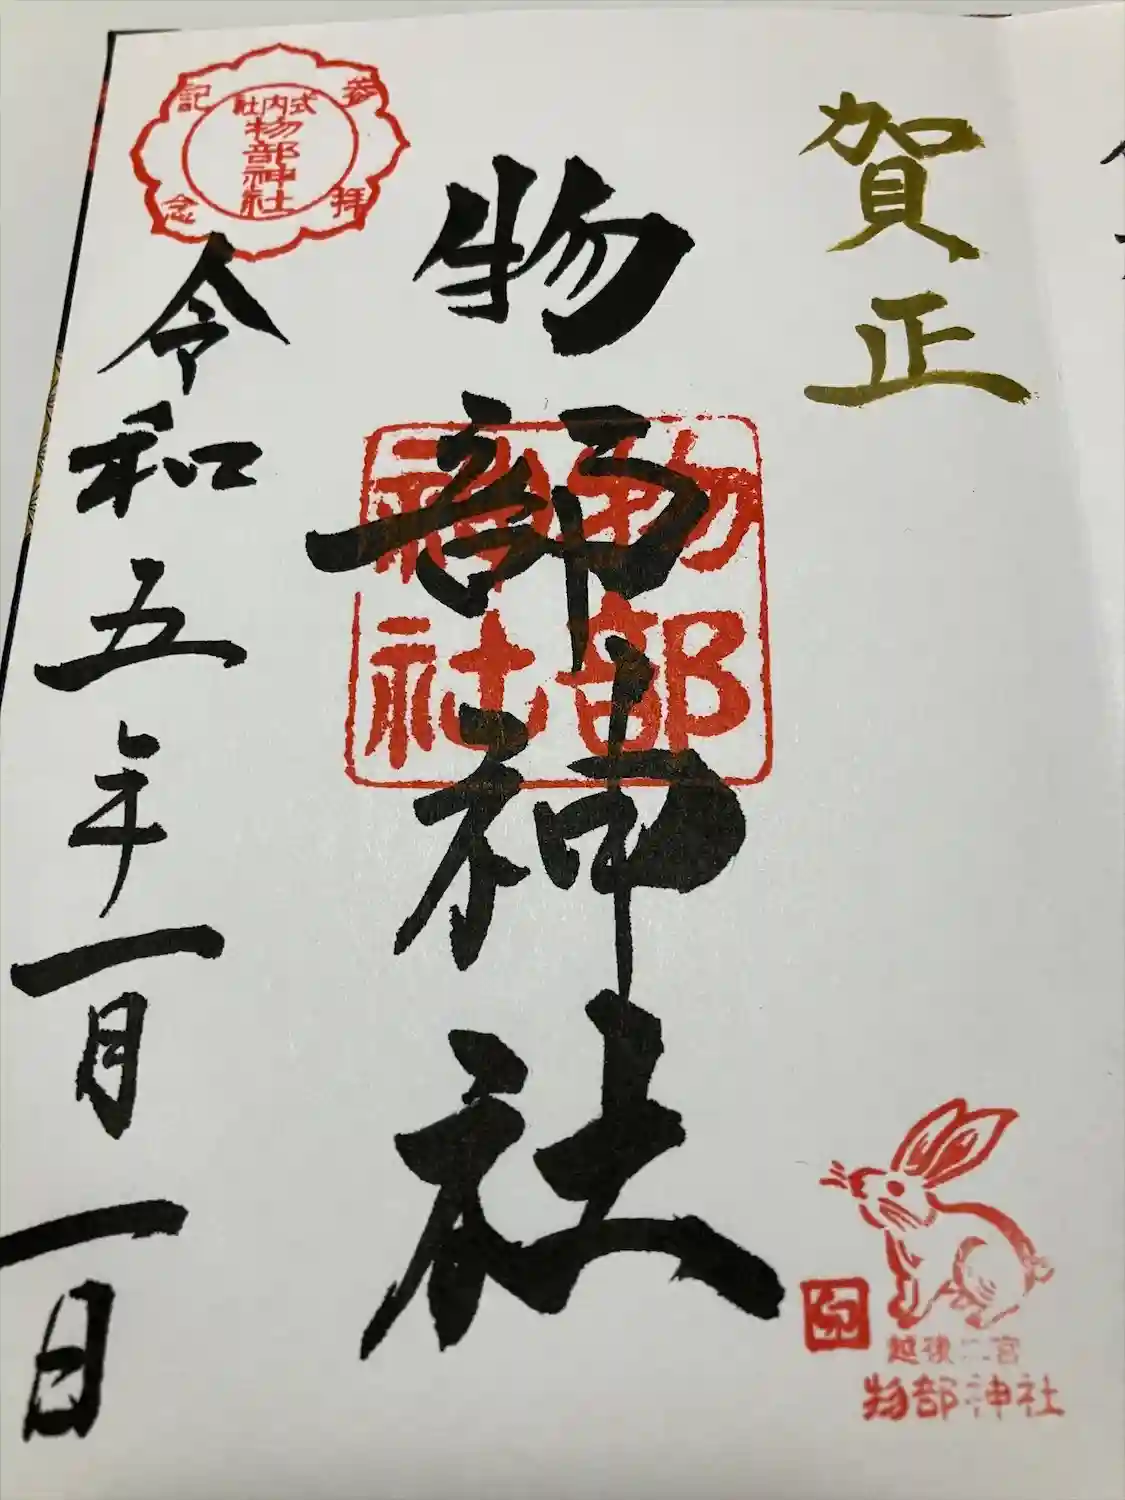 賀正
物部神社
物部神社
令和五年一月一日
参拝記念
式内社
物部神社
卯
越後二宮
物部神社